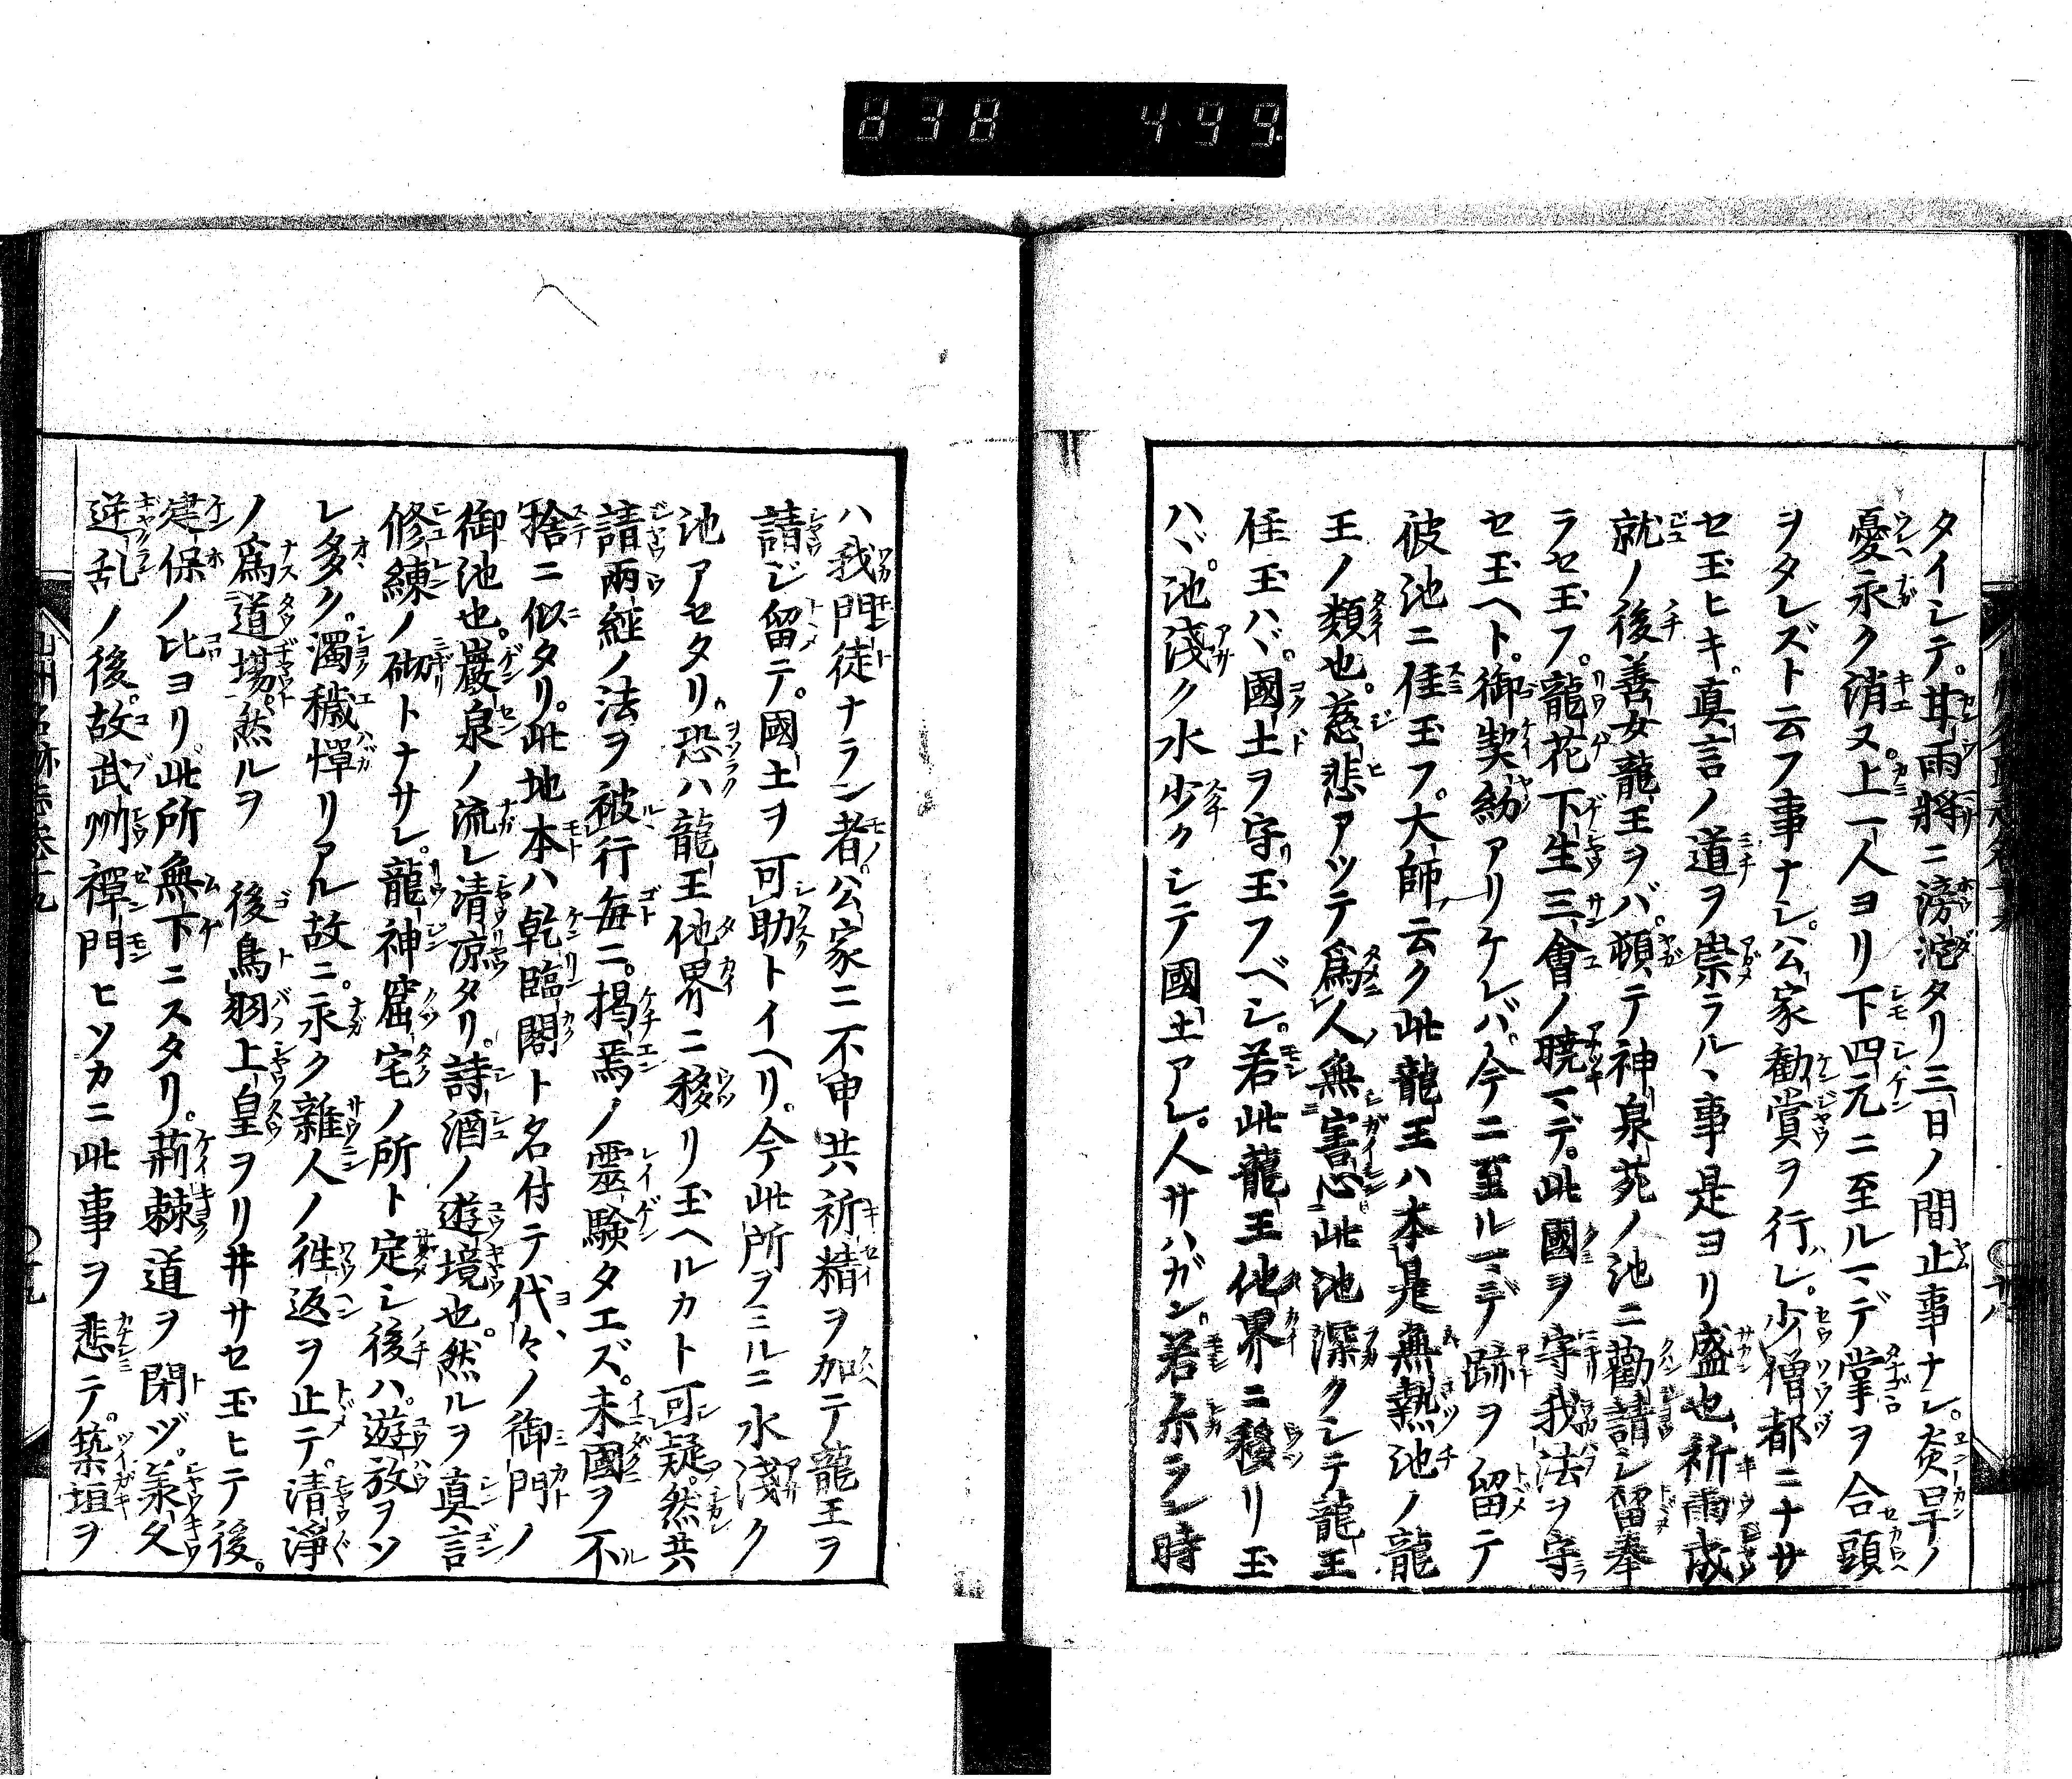 838 499
タイシテ。甘雨將ニ滂沱タリ三日ノ間止事ナシ。炎旱ノ
憂永ク消ヌ。上一人ヨリ下四元ニ至ルマデ掌ヲ合頭
ヲタレズト云フ事ナシ。公家勸賞ヲ行レ。少僧都ニナサ
セ玉ヒキ。真言ノ道ヲ崇ラルヽ事是ヨリ盛也。祈雨成
就ノ後善女龍王ヲバ。頓テ神泉苑ノ池ニ勸請シ留奉
ラセ玉フ。龍花下生三會ノ暁マデ。此國ヲ守我法ヲ守
セ玉ヘト。御契約アリケレバ。今ニ至ルマデ跡ヲ留テ
彼池ニ住玉フ。大師ノ云ク此龍王ハ本是無熱池ノ龍
王ノ類也。慈悲アツテ爲人無害心此池深クシテ龍王
住玉ハヾ。國土ヲ守玉フベシ。若此龍王他界ニ移リ玉
ハヾ。池淺ク水少クシテ國土アレ。人サハガン。若尓ラン時
ハ我門徒ナラン者。公家ニ不申共祈精ヲ加テ龍王ヲ
請ジ留テ。國土ヲ可助トイヘリ。今此所ヲミルニ水淺ク
池アセタリ。恐ハ龍王他界ニ移リ玉ヘルカト可疑。然共
請雨經ノ法ヲ被行毎ニ。掲焉ノ靈驗タエズ。未國ヲ不
捨ニ似タリ。此地本ハ乾臨閣ト名付テ代々ノ御門ノ
御池也。巖泉ノ流レ清凉タリ。詩酒ノ遊境也。然ルヲ真言
修練ノ砌トナサレ。龍神窟宅ノ所ト定シ後ハ。遊放ヲソ
レ多ク。濁穢憚リアル故ニ。永ク雜人ノ往返ヲ止テ。清淨
ノ爲道場。然ルヲ 後鳥羽上皇ヲリ井サセ玉ヒテ後。
建保ノ比ヨリ此所無下ニスタリ。荊棘道ヲ閉ヅ。羕久
逆乱ノ後。故武州禪門ヒソカニ此事ヲ悲テ。築垣ヲ